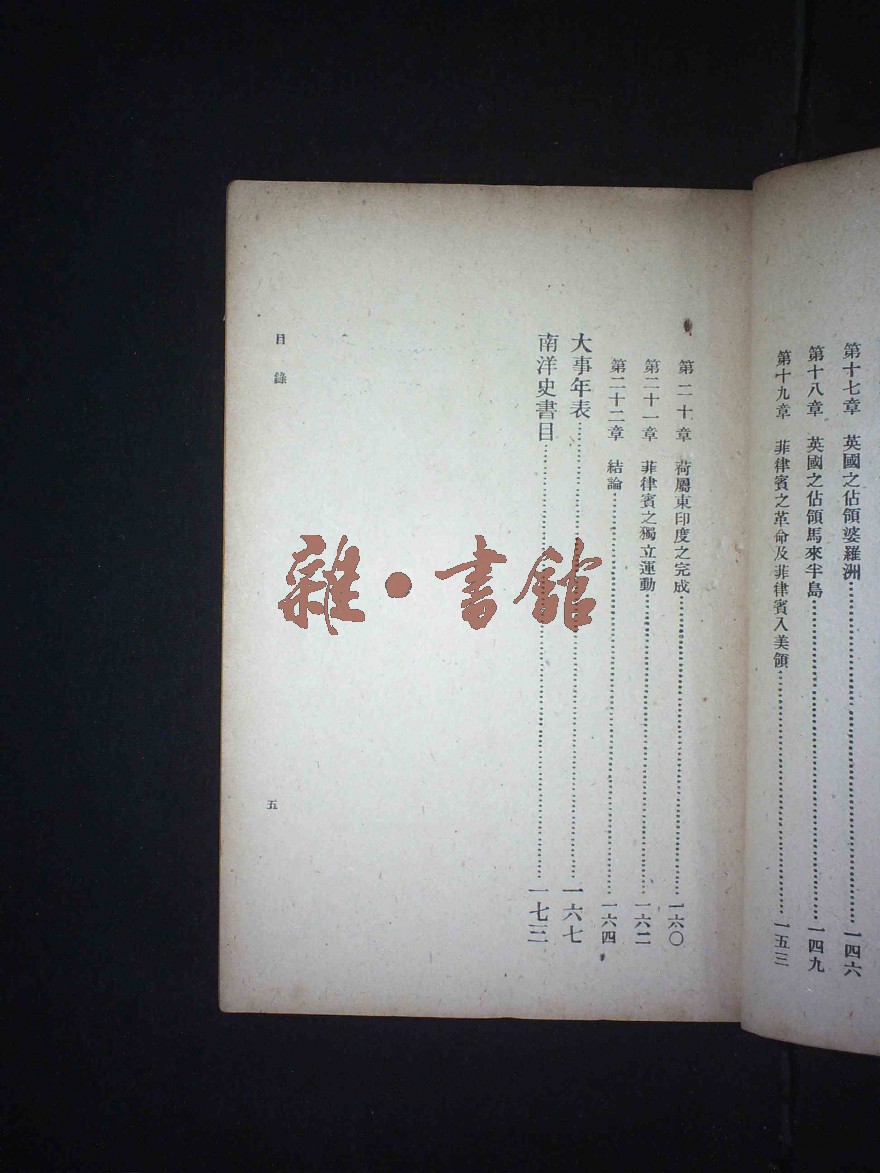 第十七章　英國之佔領婆羅洲……一四六
第十八章　英國之佔領馬來半島……一四九
第十九章　菲律賓之革命及菲律賓入美領……一五三
第二十章　荷屬東印度之完成……一六〇
第二十一章　菲律賓之獨立運動……一六二
第二十二章　結論……一六四
大事年表……一六七
南洋史書目……一七三
目錄
五
雜·書館